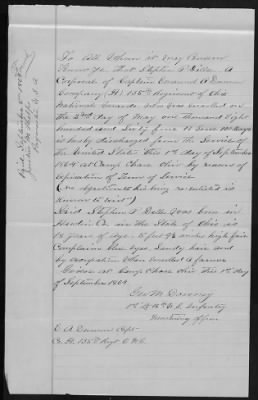 To All Whom it may Concern
Know Ye That Stephen P Dille A
Corporal of Captain Emanuel A Dunson
Company (H) 135th Regiment of Ohio
National Guards who was enrolled on
the 2nd day of May one Thousand Eight
hundred and Sixty four to Serve 100 days
is hereby discharged from the Service of
the United States This 1st day of September
1864 at Camp Chase Ohio by reason of
expiration of Term of Service
(no objection to his being re-enlisted is
known to exist)
Said Stephen P Dille was born in
Co in the State of Ohio is
18 years of age 5 feet inches high fair
Complexion blue eyes Sandy hair and
by occupation when enrolled a farmer
Given at Camp Chase Ohio This 1st day
of September 1864
Geo M Downey
1st Infantry
Mustering officer
Capt
Co H. 135th Regt O N G